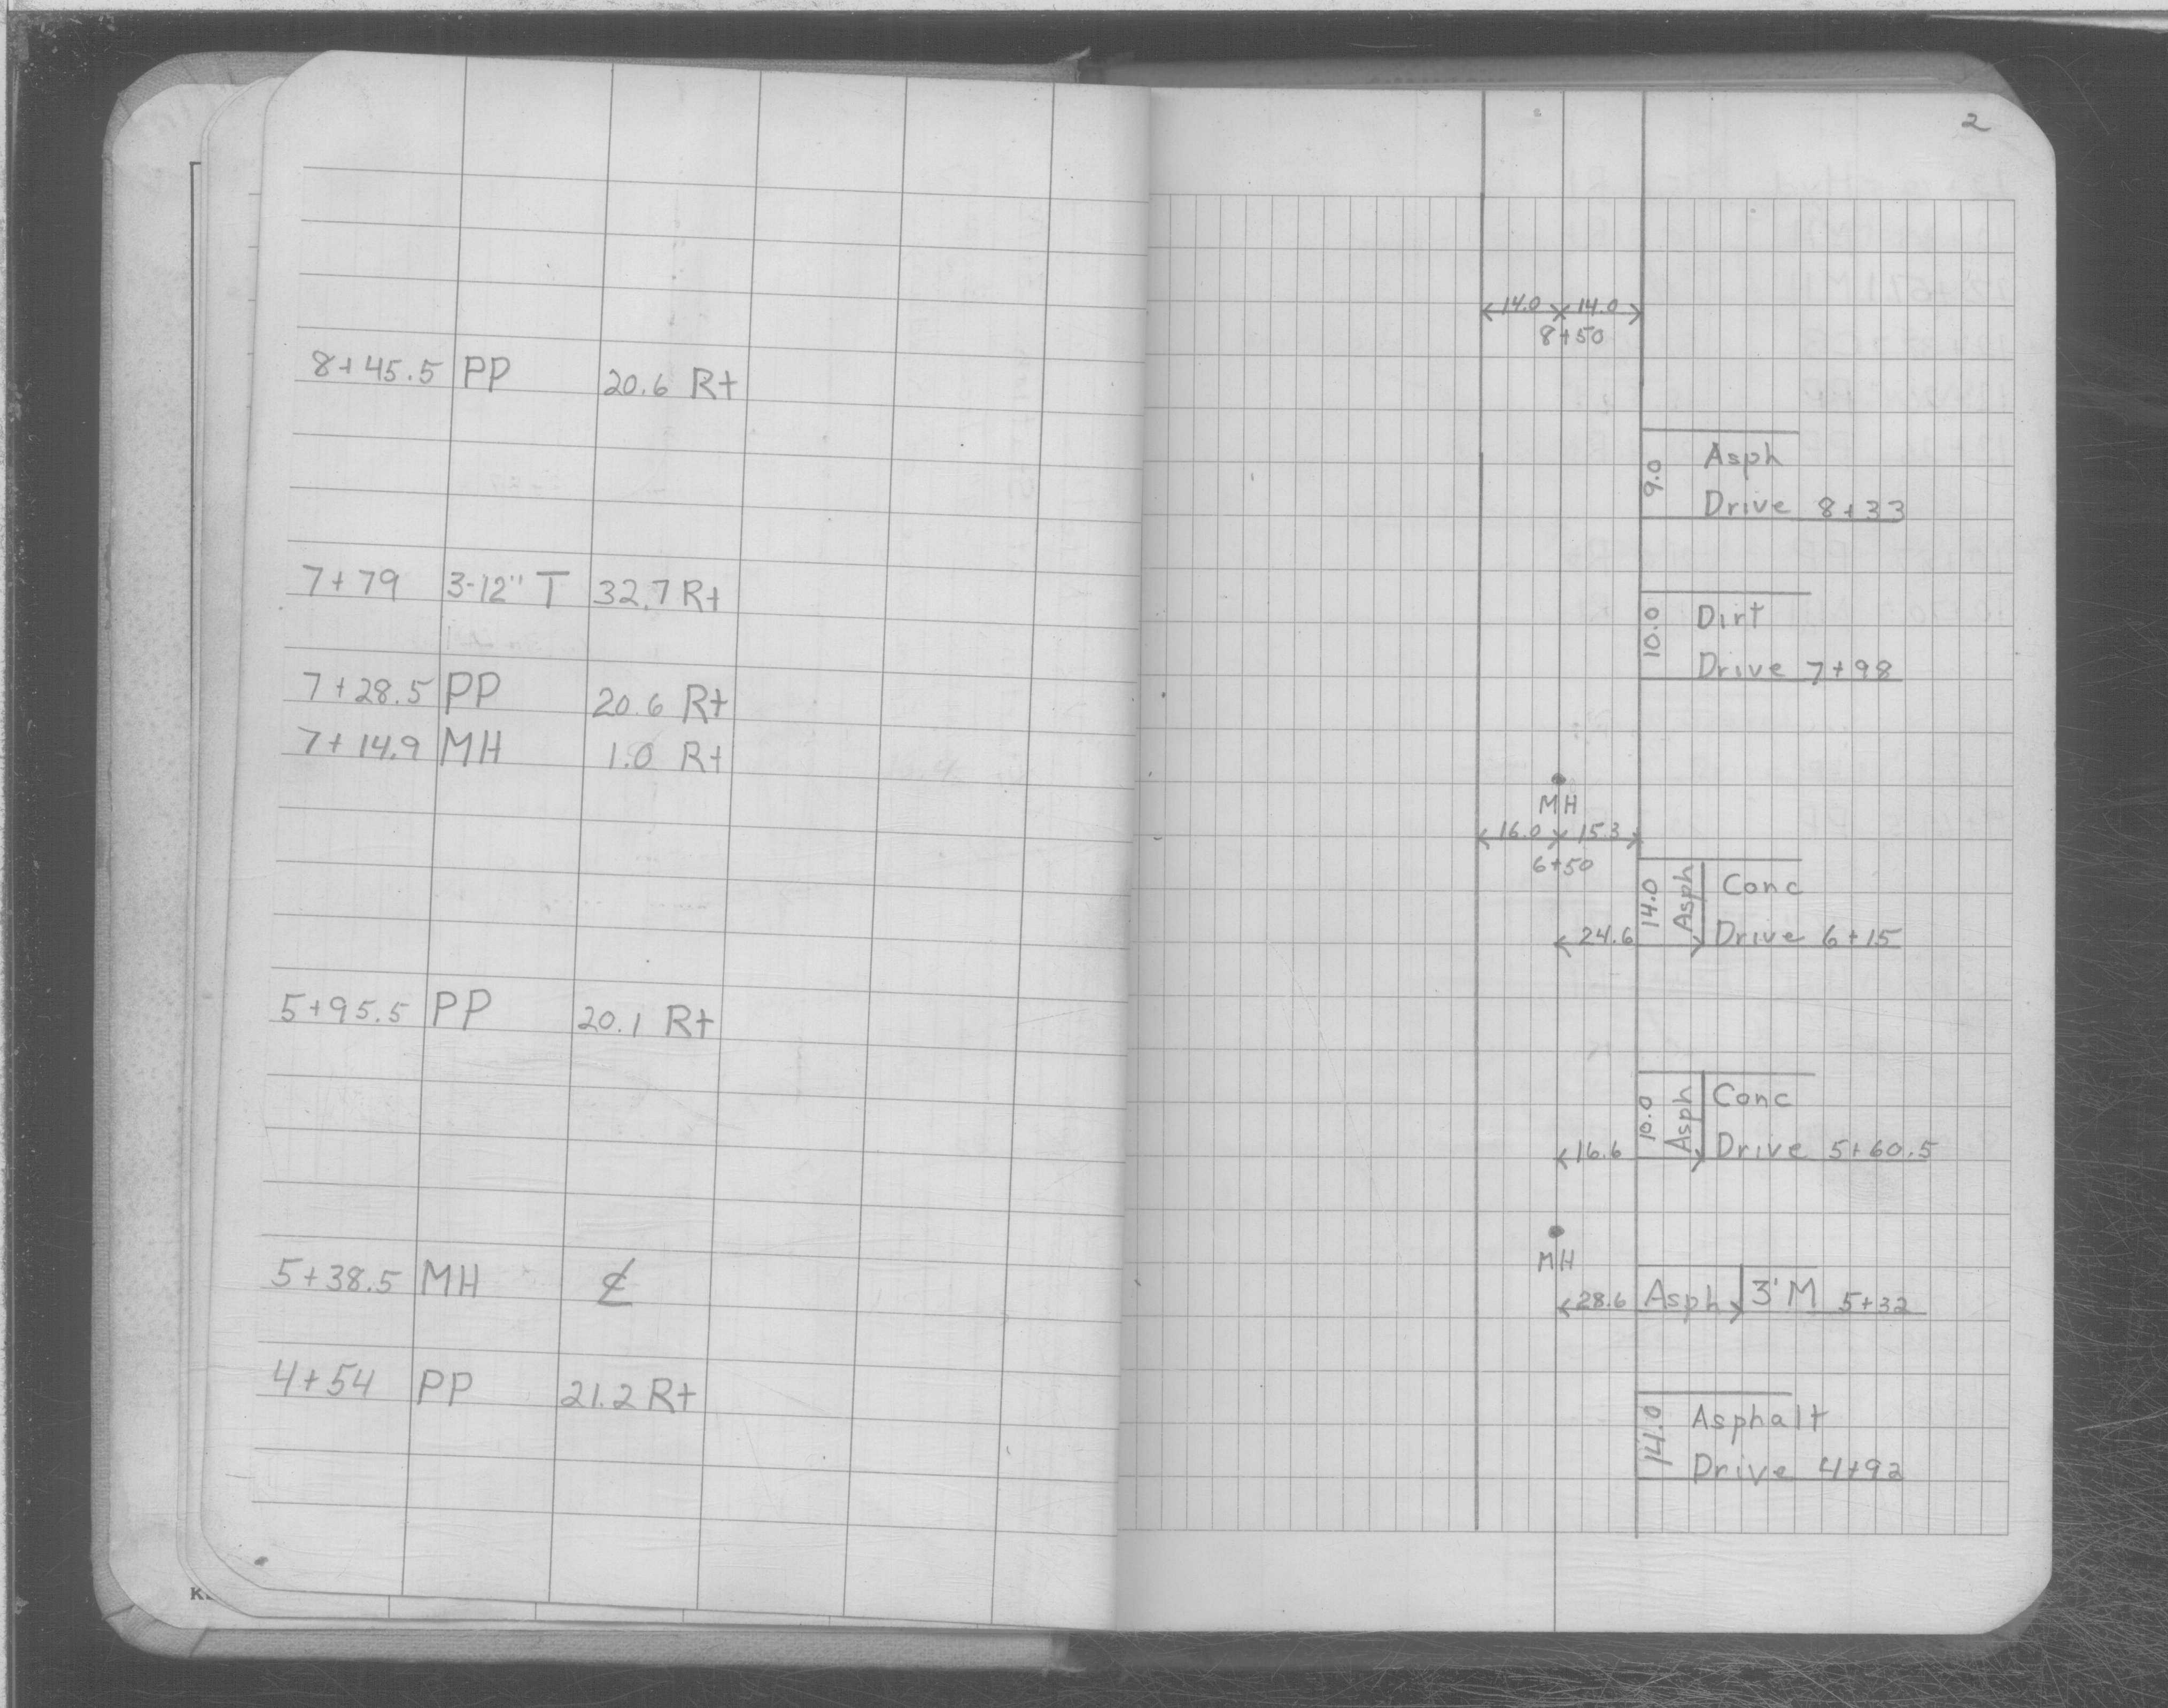 8+45.5 PP 20.6 Rt
7+79 3-12" T 32.7 Rt
7+28.5 PP 20.6 Rt
7+14.9 MH 1.0 Rt
5+95.5 PP 20.1 Rt
5+38.5 MH ℄
4+54 PP 21.2 Rt
2
14.0 14.0
8+50
9.0 Asph
Drive 8+33
10.0 Dirt
Drive 7+98
MH
16.0 15.3
6+50
14.0 Asph Conc
24.6 Drive 6+15
10.0 Asph Conc
16.6 Drive 5+60.5
MH
28.6 Asph 3'M 5+32
14.0 Asphalt
Drive 4+92